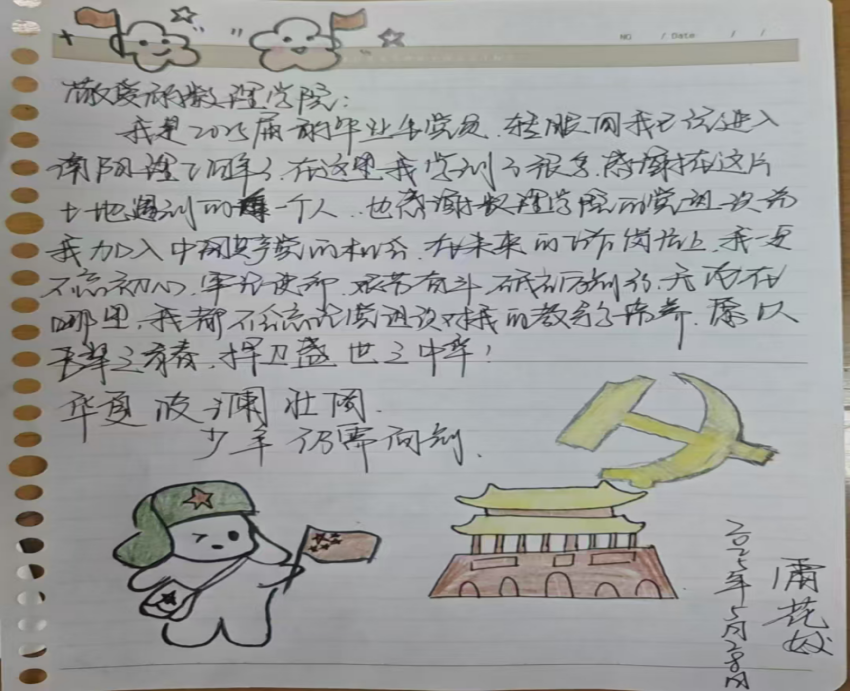 NO / Data / /
敬爱的数理学院：
我是2025届的毕业生党员，转眼间我已经进入
南阳理工四年了，在这里我学到了很多，感谢在这片
土地遇到的每一个人，也感谢数理学院的党建，
我加入中国共产党的机会，在未来的工作岗位上，我一定
不忘初心，牢记使命，艰苦奋斗，砥砺前行，无论在
哪里，我都不会忘记党建对我的教导与培养，愿以
青春，捍卫盛世之中华！
华夏波澜壮阔，
少年仍需向前。
2025年5月28日
花姣